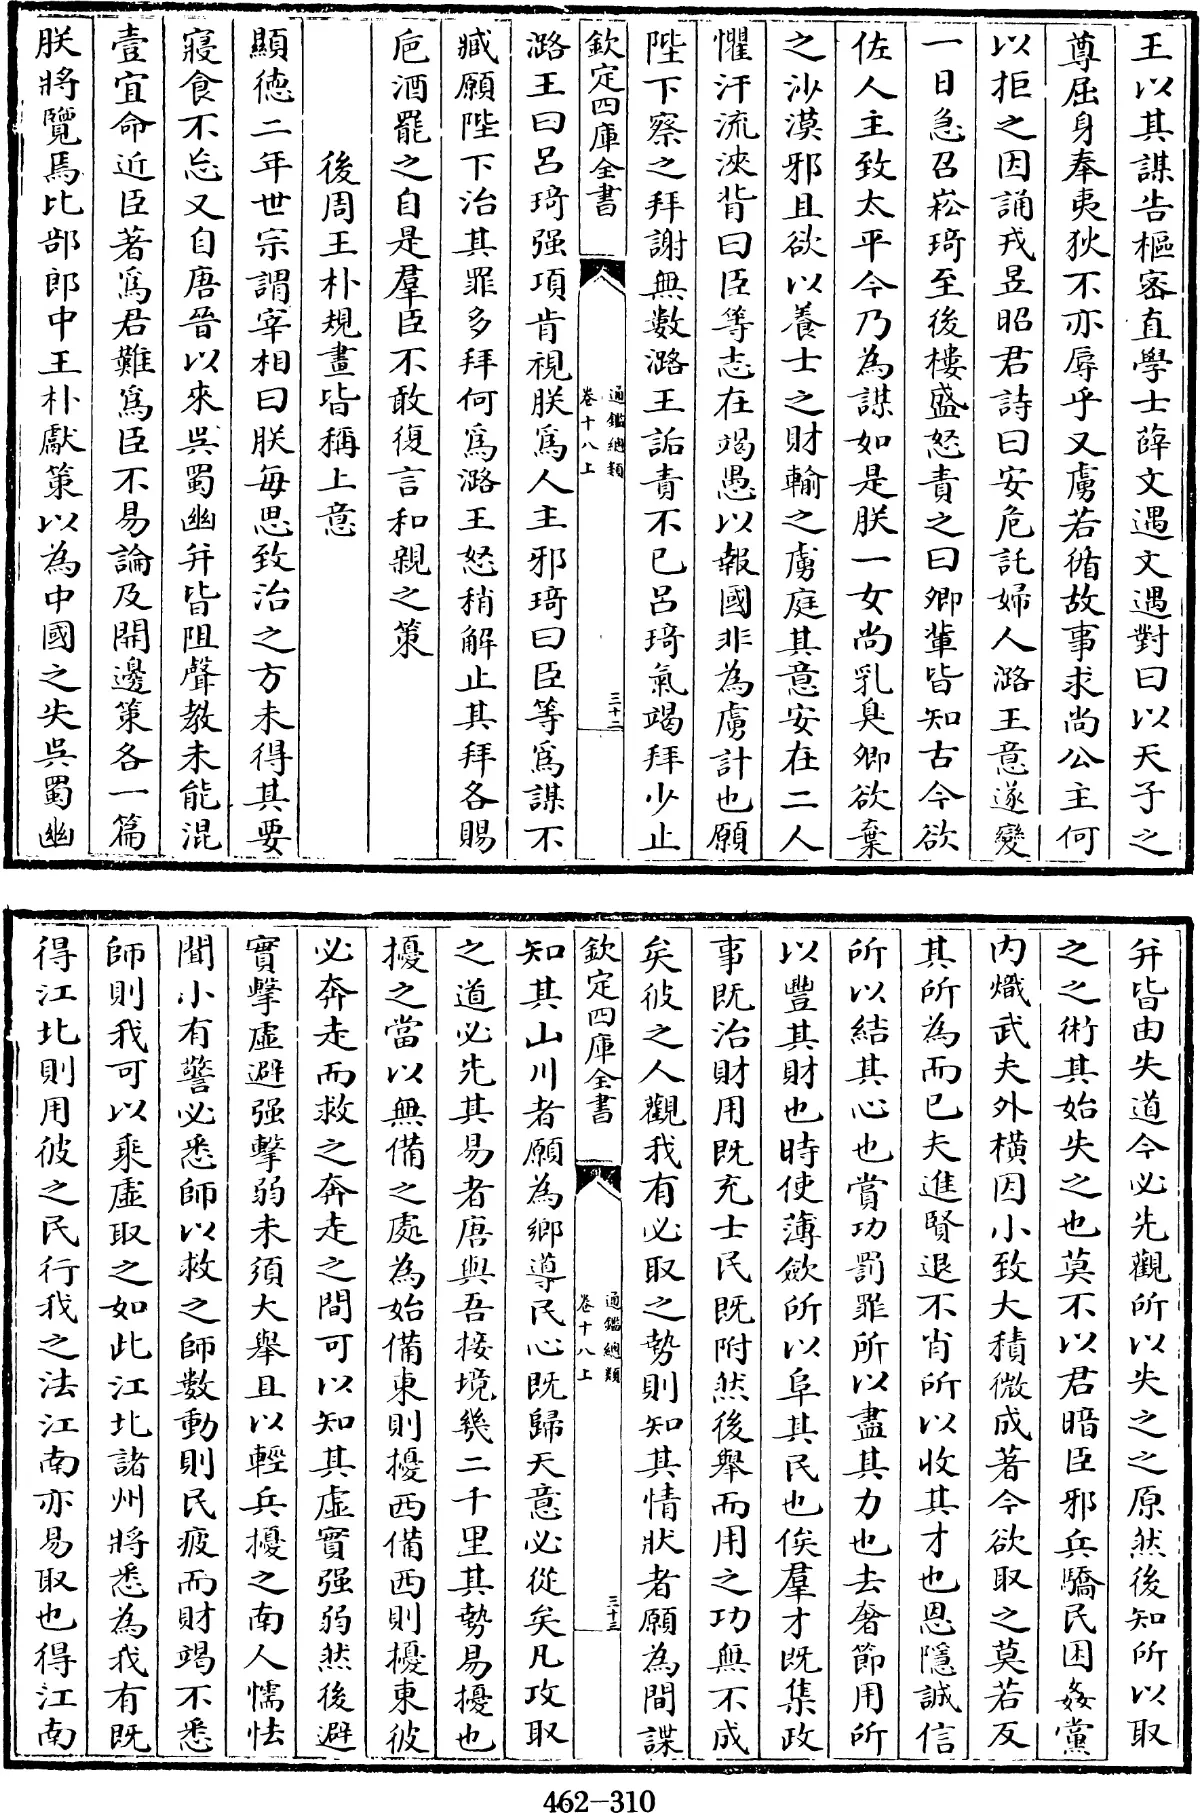 王以其謀告樞密直學士薛文遇文遇對曰以天子之
尊屈身奉夷狄不亦辱乎又虜若循故事求尚公主何
以拒之因誦戎昱昭君詩曰安危託婦人潞王意遂變
一日急召崧琦至後樓盛怒責之曰卿輩皆知古今欲
佐人主致太平今乃為謀如是朕一女尚乳臭卿欲棄
之沙漠邪且欲以養士之財輸之虜庭其意安在二人
懼汗流浹背曰臣等志在竭愚以報國非為虜計也願
陛下察之拜謝無數潞王詬責不已呂琦氣竭拜少止
欽定四庫全書
通鑑總類
卷十八上
三十二
潞王曰呂琦强項肯視朕爲人主邪琦曰臣等爲謀不
臧願陛下治其罪多拜何爲潞王怒稍解止其拜各賜
巵酒罷之自是羣臣不敢復言和親之策
後周王朴規畫皆稱上意
顯德二年世宗謂宰相曰朕每思致治之方未得其要
寢食不忘又自唐晉以來吳蜀幽并皆阻聲教未能混
壹宜命近臣著爲君難爲臣不易論及開邊策各一篇
朕將覽焉比部郎中王朴獻策以為中國之失吳蜀幽
并皆由失道今必先觀所以失之之原然後知所以取
之之術其始失之也莫不以君暗臣邪兵驕民困姦黨
内熾武夫外橫因小致大積微成著今欲取之莫若反
其所為而已夫進賢退不肖所以收其才也恩隱誠信
所以結其心也賞功罰罪所以盡其力也去奢節用所
以豐其財也時使薄斂所以阜其民也俟羣才既集政
事既治財用既充士民既附然後舉而用之功無不成
矣彼之人觀我有必取之勢則知其情狀者願為間諜
欽定四庫全書
通鑑總類
卷十八上
三十三
知其山川者願為鄉導民心既歸天意必從矣凡攻取
之道必先其易者唐與吾接境幾二千里其勢易擾也
擾之當以無備之處為始備東則擾西備西則擾東彼
必奔走而救之奔走之間可以知其虛實强弱然後避
實擊虛避强擊弱未須大舉且以輕兵擾之南人懦怯
聞小有警必悉師以救之師數動則民疲而財竭不悉
師則我可以乘虛取之如此江北諸州將悉為我有既
得江北則用彼之民行我之法江南亦易取也得江南
462-310